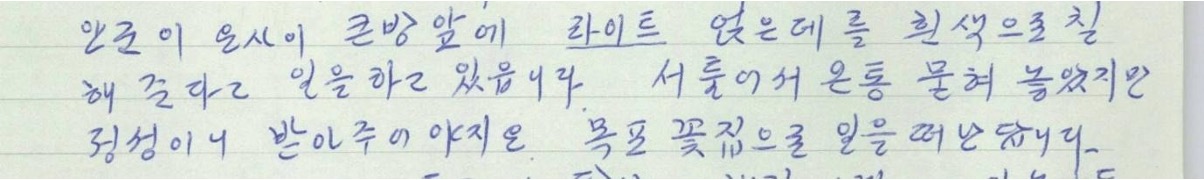 안준이 은사이 큰방앞에 라이트 얹은데를 흰색으로칠
해 준다고 일을하고 있읍니다. 서툴어서 온통 묻혀 놓았지만
정성이니 받아주어야지요. 목포 꽃집으로 일을 떠난답니다.